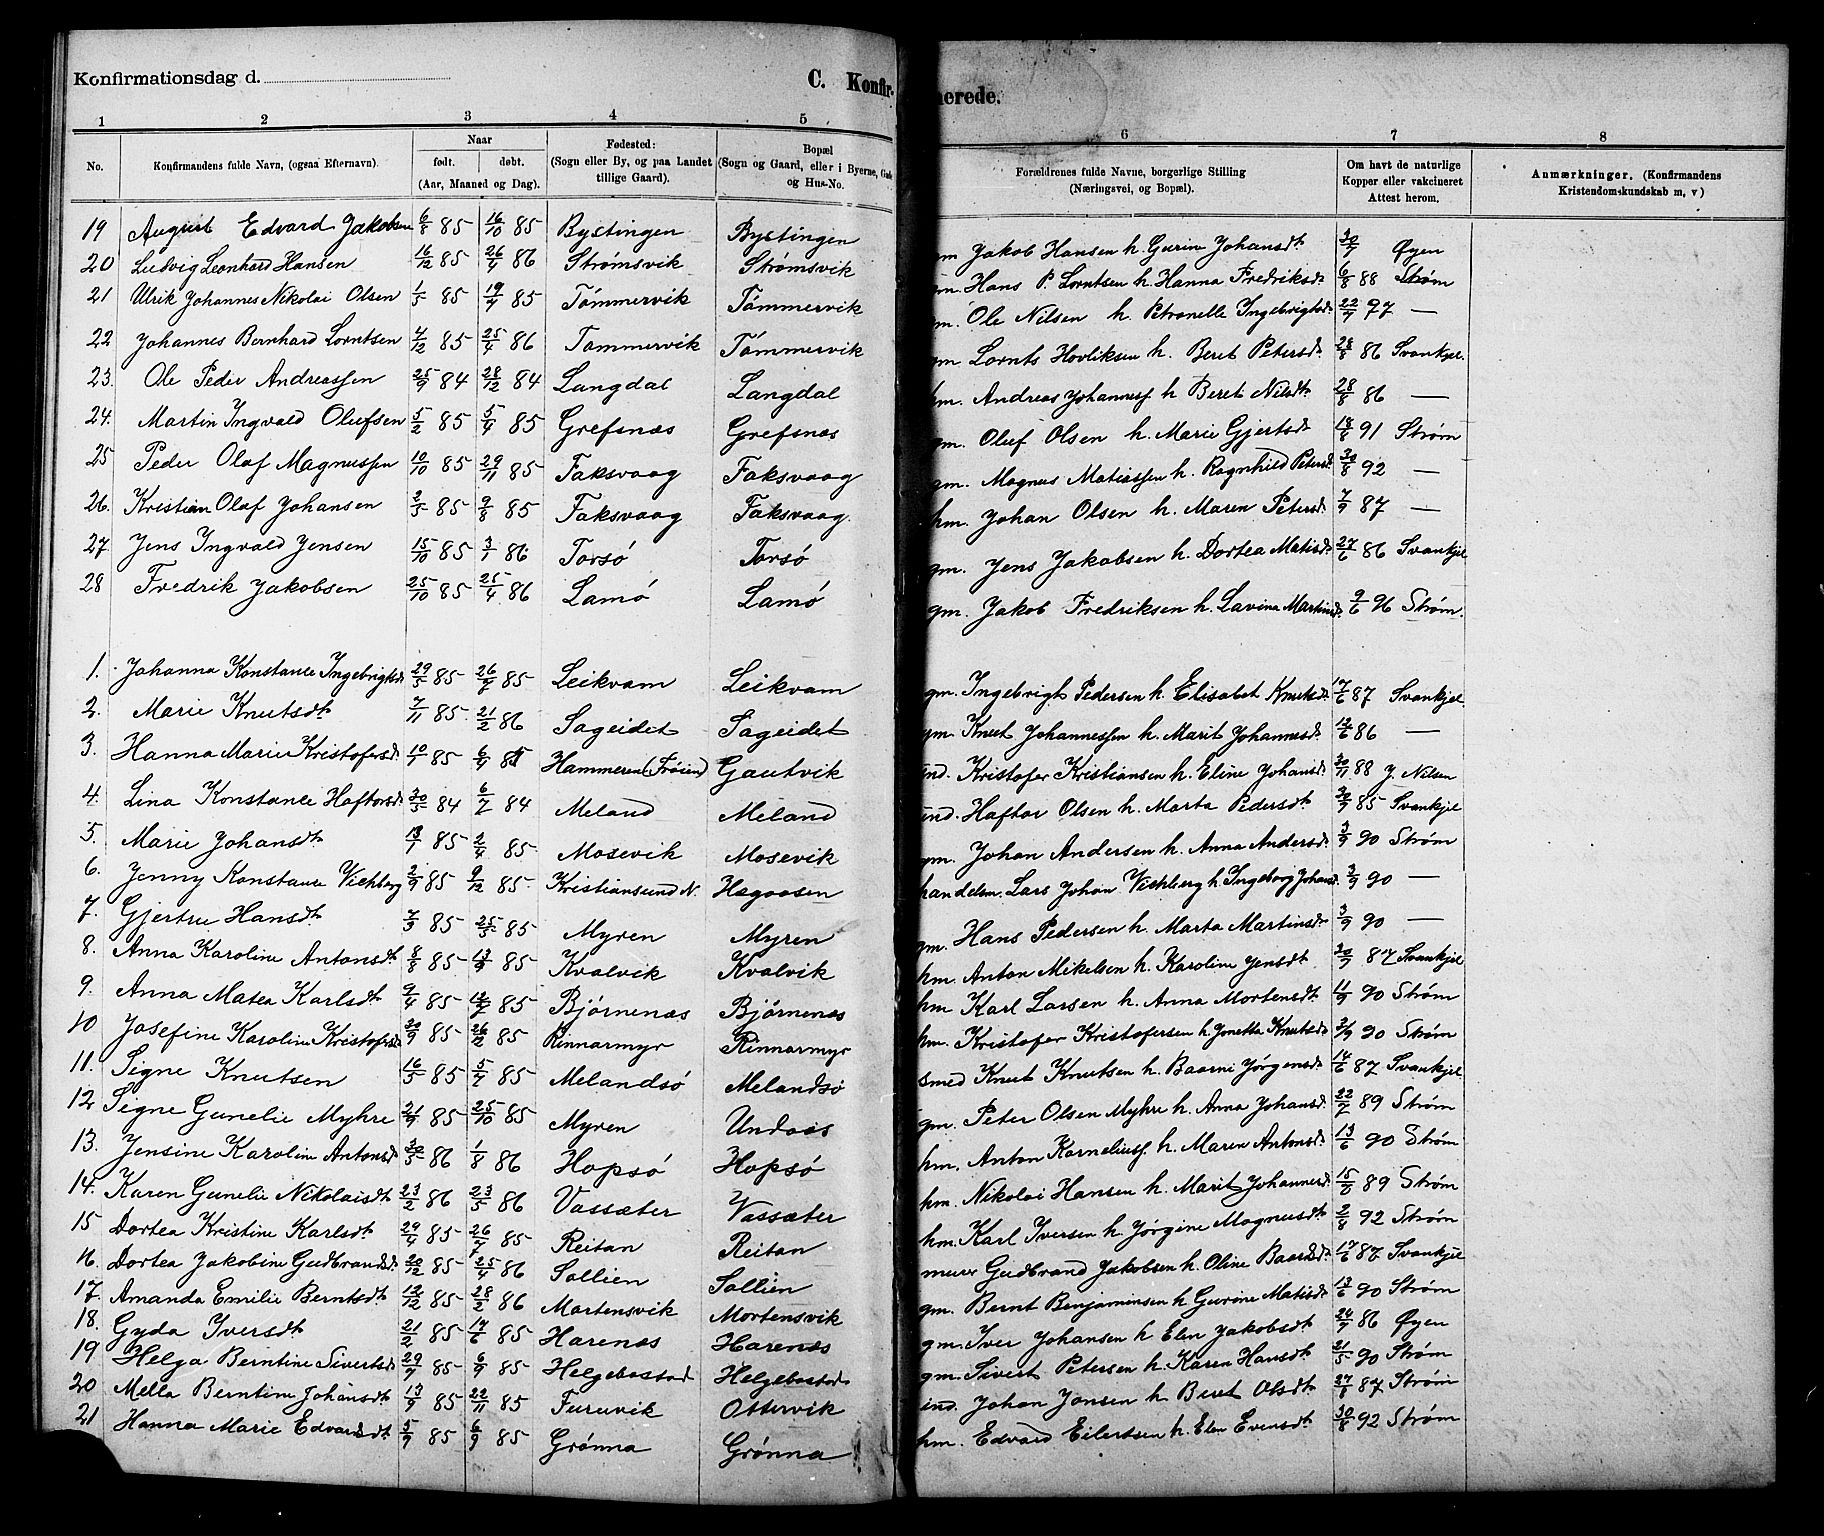 Konfirmationsdag d.
C. Konfir-
merede.
1 2 3 4 5 6 7 8
No. Konfirmandens fulde Navn, (ogsaa Efternavn). Naar født. døbt. (Aar, Maaned og Dag). Fødested: (Sogn eller By, og paa Landet tillige Gaard). Bopæl (Sogn og Gaard, eller i Byerne, Gade og Hus-No. Forældrenes fulde Navne, borgerlige Stilling (Næringsvei, og Bopæl). Om havt de naturlige Kopper eller vakcineret Attest herom. Anmærkninger. (Konfirmandens Kristendomskundskab m, v)
19 August Edvard Jakobsen 6/8 85 16/10 85 Bystingen Bystingen gm Jakob Hansen h. Gurine Johansdt 30/7 Øyen
20 Ludvig Leonhard Hansen 16/12 85 26/4 86 Strømsvik Strømsvik gm. Hans P. Lorntsen h. Hanna Fredriksd. 6/8 88 Strøm
21 Ulrik Johannes Nikolai Olsen 1/5 85 19/7 85 Tømmervik Tømmervik gm. Ole Nilsen h. Petronelle Ingebrigtsd. 22/7 97 —
22 Johannes Bernhard Lorntsen 4/12 85 25/4 86 Tømmervik Tømmervik gm Lornts Hovliksen h. Beret Petersd. 28/8 86 Svankjel.
23. Ole Peder Andreassen 25/9 84 28/12 84 Langdal Langdal hm. Andreas Johanness. h Beret Nilsdt 28/8 86 —
24. Martin Ingvald Olufsen 5/2 85 5/4 85 Grefsnæs Grefsnæs gm. Oluf Olsen h. Marie Gjertsd. 18/8 91 Strøm
25 Peder Olaf Magnussen 10/10 85 29/11 85 Faksvaag Faksvaag gm. Magnus Matiassen h. Ragnhild Petersd 30/8 92 —
26. Kristian Olaf Johansen 2/5 85 9/8 85 Faksvaag Faksvaag. hm. Johan Olsen h. Maren Petersd. 7/9 87 —
27. Jens Ingvald Jensen 15/10 85 3/1 86 Torsø Torsø gm. Jens Jakobsen h. Dortea Matisd. 27/6 86 Svankjel
28 Fredrik Jakobsen 25/10 85 25/4 86 Lamø Lamø gm. Jakob Fredriksen h. Lavina Martinsd. 9/6 96 Strøm.
1. Johanna Konstance Ingebrigtsd. 29/5 85 26/7 85 Leikvam Leikvam gm. Ingebrigt Pedersen h. Elisabet Knutsd. 17/6 87 Svankjel
2. Marie Knutsdt 7/11 85 21/2 86 Sageidet Sageidet gm. Knut Johannessen h. Marit Johannesd. 12/6 86 —
3. Hanna Marie Kristofersd. 10/1 85 6/4 85 Hammeren (Frøien) Gautvik ind. Kristofer Kristiansen h. Eline Johansd. 30/11 88 J. Nilsen
4. Lina Konstance Haftorsd. 30/5 84 6/7 84 Meland Meland ind. Haftor Olsen h. Marta Pedersdt 30/7 85 Svankjel
5. Marie Johansdt 13/1 85 2/4 85 Mosevik Mosevik gm. Johan Andersen h. Anna Andersd. 3/9 90 Strøm
6. Jenny Konstance Vichberg 2/9 85 9/12 85 Kristiansund N. Hagaasen handelsm. Lars Johan Vichberg h. Ingeborg Johansd. 3/9 90 —
7. Gjertru Hansdt 7/3 85 25/5 85 Myren Myren gm. Hans Pedersen h. Marta Martinsd. 3/9 90 —
8. Anna Karoline Antonsdt 8/8 85 13/9 85 Kvalvik Kvalvik hm. Anton Mikelsen h. Karoline Jensdt 30/7 87 Svankjel
9. Anna Matea Karlsdt 9/4 85 12/7 85 Bjørnenæs Bjørnenæs hm Karl Larsen h. Anna Mortensdt 11/9 90 Strøm
10 Josefine Karoline Kristofersd. 20/9 85 26/12 85 Rinnarmyr Rinnarmyr hm. Kristofer Kristofersen h. Jonetta Knutsd. 3/9 90 Strøm
11. Signe Knutsen 16/5 85 5/7 85 Melandsø Melandsø smed Knut Knutsen h. Baarni Jørgensd. 14/6 87 Svankjel
12 Signe Gunelie Myhre 21/9 85 25/10 85 Myren Undaas gm. Peter Olsen Myhre h. Anna Johansd. 22/7 89 Strøm
13. Jensine Karoline Antonsd. 30/5 86 1/8 86 Hopsø Hopsø hm. Anton Korneliuss. h. Maren Antonsd. 13/6 90 Strøm
14. Karen Gunelie Nikolaisdt 23/2 86 23/5 86 Vassæter Vassæter hm. Nikolai Hansen h. Marit Johannesd. 15/8 89 Strøm
15 Dortea Kristine Karlsdt 29/4 85 26/7 85 Reitan Reitan hm. Karl Iversen h. Jørgine Magnusdt 2/8 92 Strøm
16. Dortea Jakobine Gudbrandsd. 20/12 85 25/4 86 Sollien Sollien murer Gudbrand Jakobsen h. Oline Baardsd. 17/6 87 Svankjel
17. Amanda Emilie Berntsdt 12/12 85 28/2 86 Mortensvik Mortensvik gm. Bernt Benjaminsen h Gurine Matisd. 13/6 90 Strøm
18. Gyda Iversdt 21/2 85 14/6 85 Harenæs Harenæs gm. Iver Johansen h. Elen Jakobsdt 24/7 86 Øyen
19 Helga Berntine Sivertsd. 29/7 85 6/9 85 Helgebostad Helgebostad gm. Sivert Petersen h. Karen Hansdt 21/5 90 Strøm
20 Mella Berntine Johansdt 13/9 85 22/11 85 Furuvik Ottervik ind. Johan Jonsen h Beret Olsdt 27/6 87 Strøm
21 Hanna Marie Edvardsdt 5/7 85 6/9 85 Grønna Grønna hm. Edvard Eilertsen h. Elen Evensdt 30/8 92 Strøm